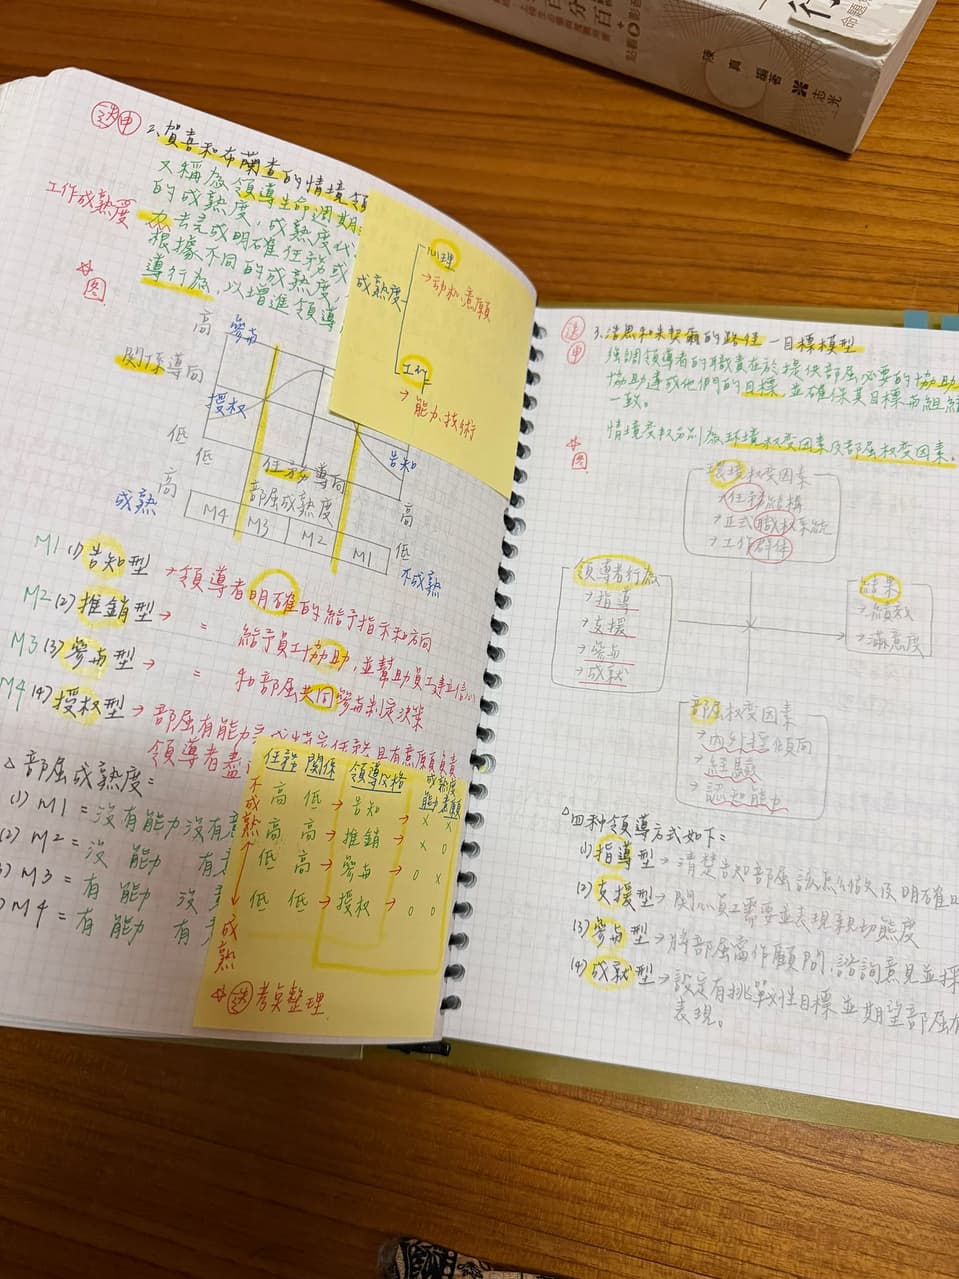 選 申
2、賀喜和布蘭查的情境領
又稱為領導生命週期
的成熟度,成熟度代
力去完成明確任務或
根據不同的成熟度,
導行為,以增進領導
工作成熟度
☆
圖
成熟度
心理
→動機、意願
工作
→能力、技術
高 參与
關係導向
授权
低
低 任務導向 高
告知
成熟 高 部屬成熟度 低 不成熟
M4 M3 M2 M1
M1 (1) 告知型 →領導者明確的給予指示和方向
M2 (2) 推銷型 → = 給予員工協助,並幫助員工建立信心
M3 (3) 參与型 → = 和部屬共同參与制定決策
M4 (4) 授权型 → 部屬有能力 任務且有意願負責
領導者
△部屬成熟度=
(1) M1 = 沒有能力沒有意
(2) M2 = 沒 能力 有
) M3 = 有 能力 沒
) M4 = 有 能力 有
任務 關係 領導風格 成熟度
能力 意願
不成熟
高 低 → 告知 → x x
高 高 → 推銷 → x o
低 高 → 參与 → o x
低 低 → 授权 → o o
成熟
☆ 選 考点整理
選
申
3、浩思和米契爾的路徑-目標模型
強調領導者的職責在於提供部屬必要的協助
協助達成他們的目標,並確保其目標与組織
一致。
情境变數可分為環境权变因素及部屬权变因素。
☆
圖
環境权变因素
→任務結構
→正式職权系統
→工作群体
領導者行為
→指導
→支援
→參与
→成就
結果
→績效
→滿意度
部屬权变因素
→內外控傾向
→經驗
→認知能力
△四种領導方式如下=
(1) 指導型→清楚告知部屬該怎麼做及明確
(2) 支援型→關心員工需要並表現親切態度
(3) 參与型→將部屬當作顧問,諮詢意見並採
(4) 成就型→設定有挑戰性目標並期望部屬有
表現。
陳真 編著
志光